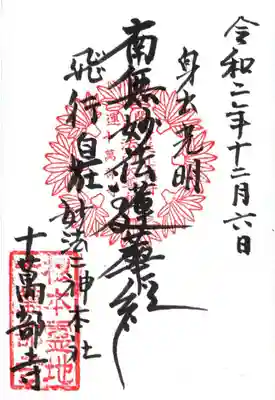 令和二年十二月六日
身出光明
南無妙法蓮華経
飛行自在 妙法二神本社
十萬部寺